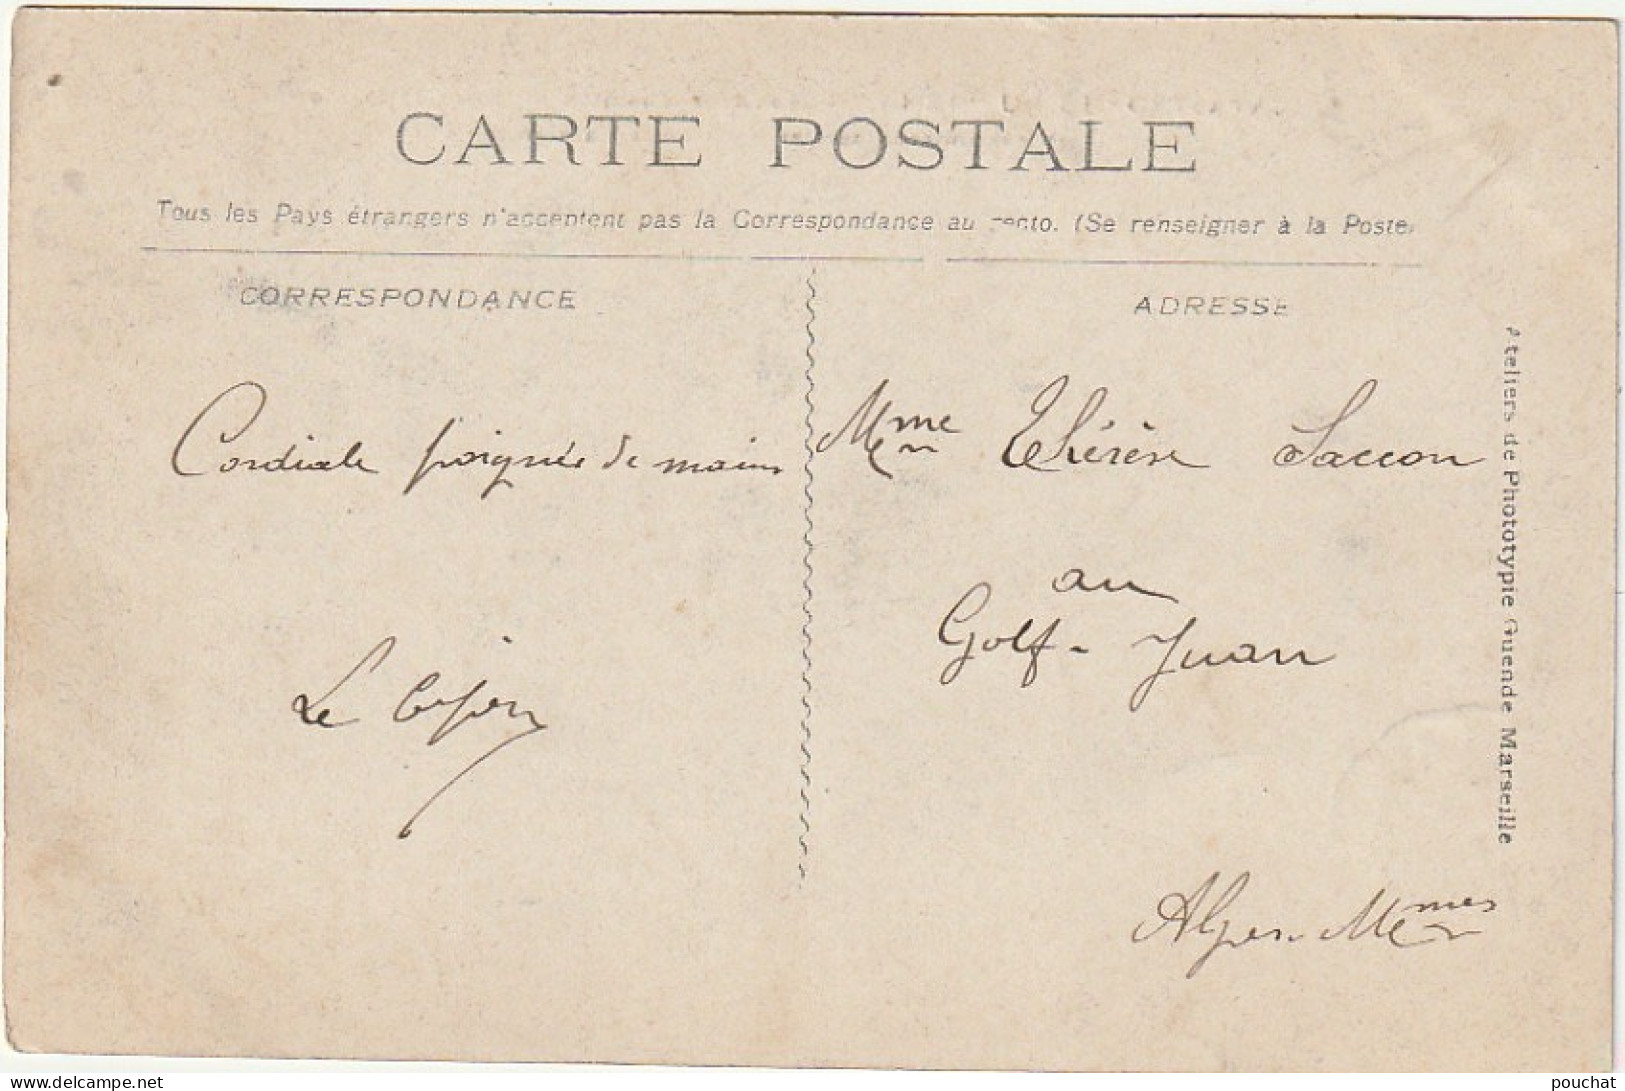 CARTE POSTALE
Tous les Pays étrangers n'acceptent pas la Correspondance au recto. (Se renseigner à la Poste)
CORRESPONDANCE
Cordiale poignée de mains
Le
ADRESSE
Mme Thérèse Saccon
au
Golf-Juan
Alpes-Mmes
Ateliers de Phototypie Guende Marseille
delcampe.net
pouchat